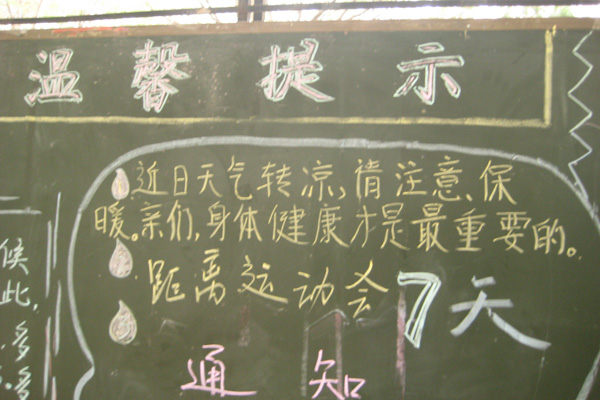 温馨提示
近日天气转凉,请注意、保
暖。亲们,身体健康才是最重要的。
距离运动会7天
通知
候
此,
多
多